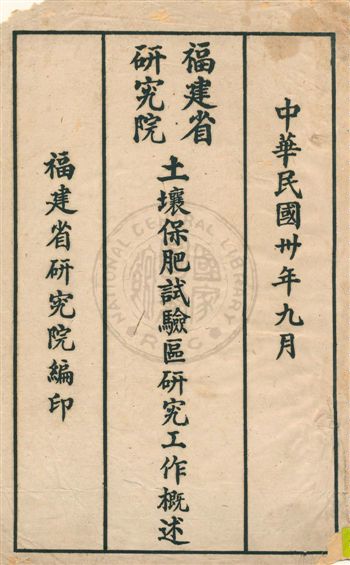 中華民國卅年九月
福建省研究院
土壤保肥試驗區研究工作概述
福建省研究院編印
NATIONAL CENTRAL LIBRARY
R.O.C.
國家